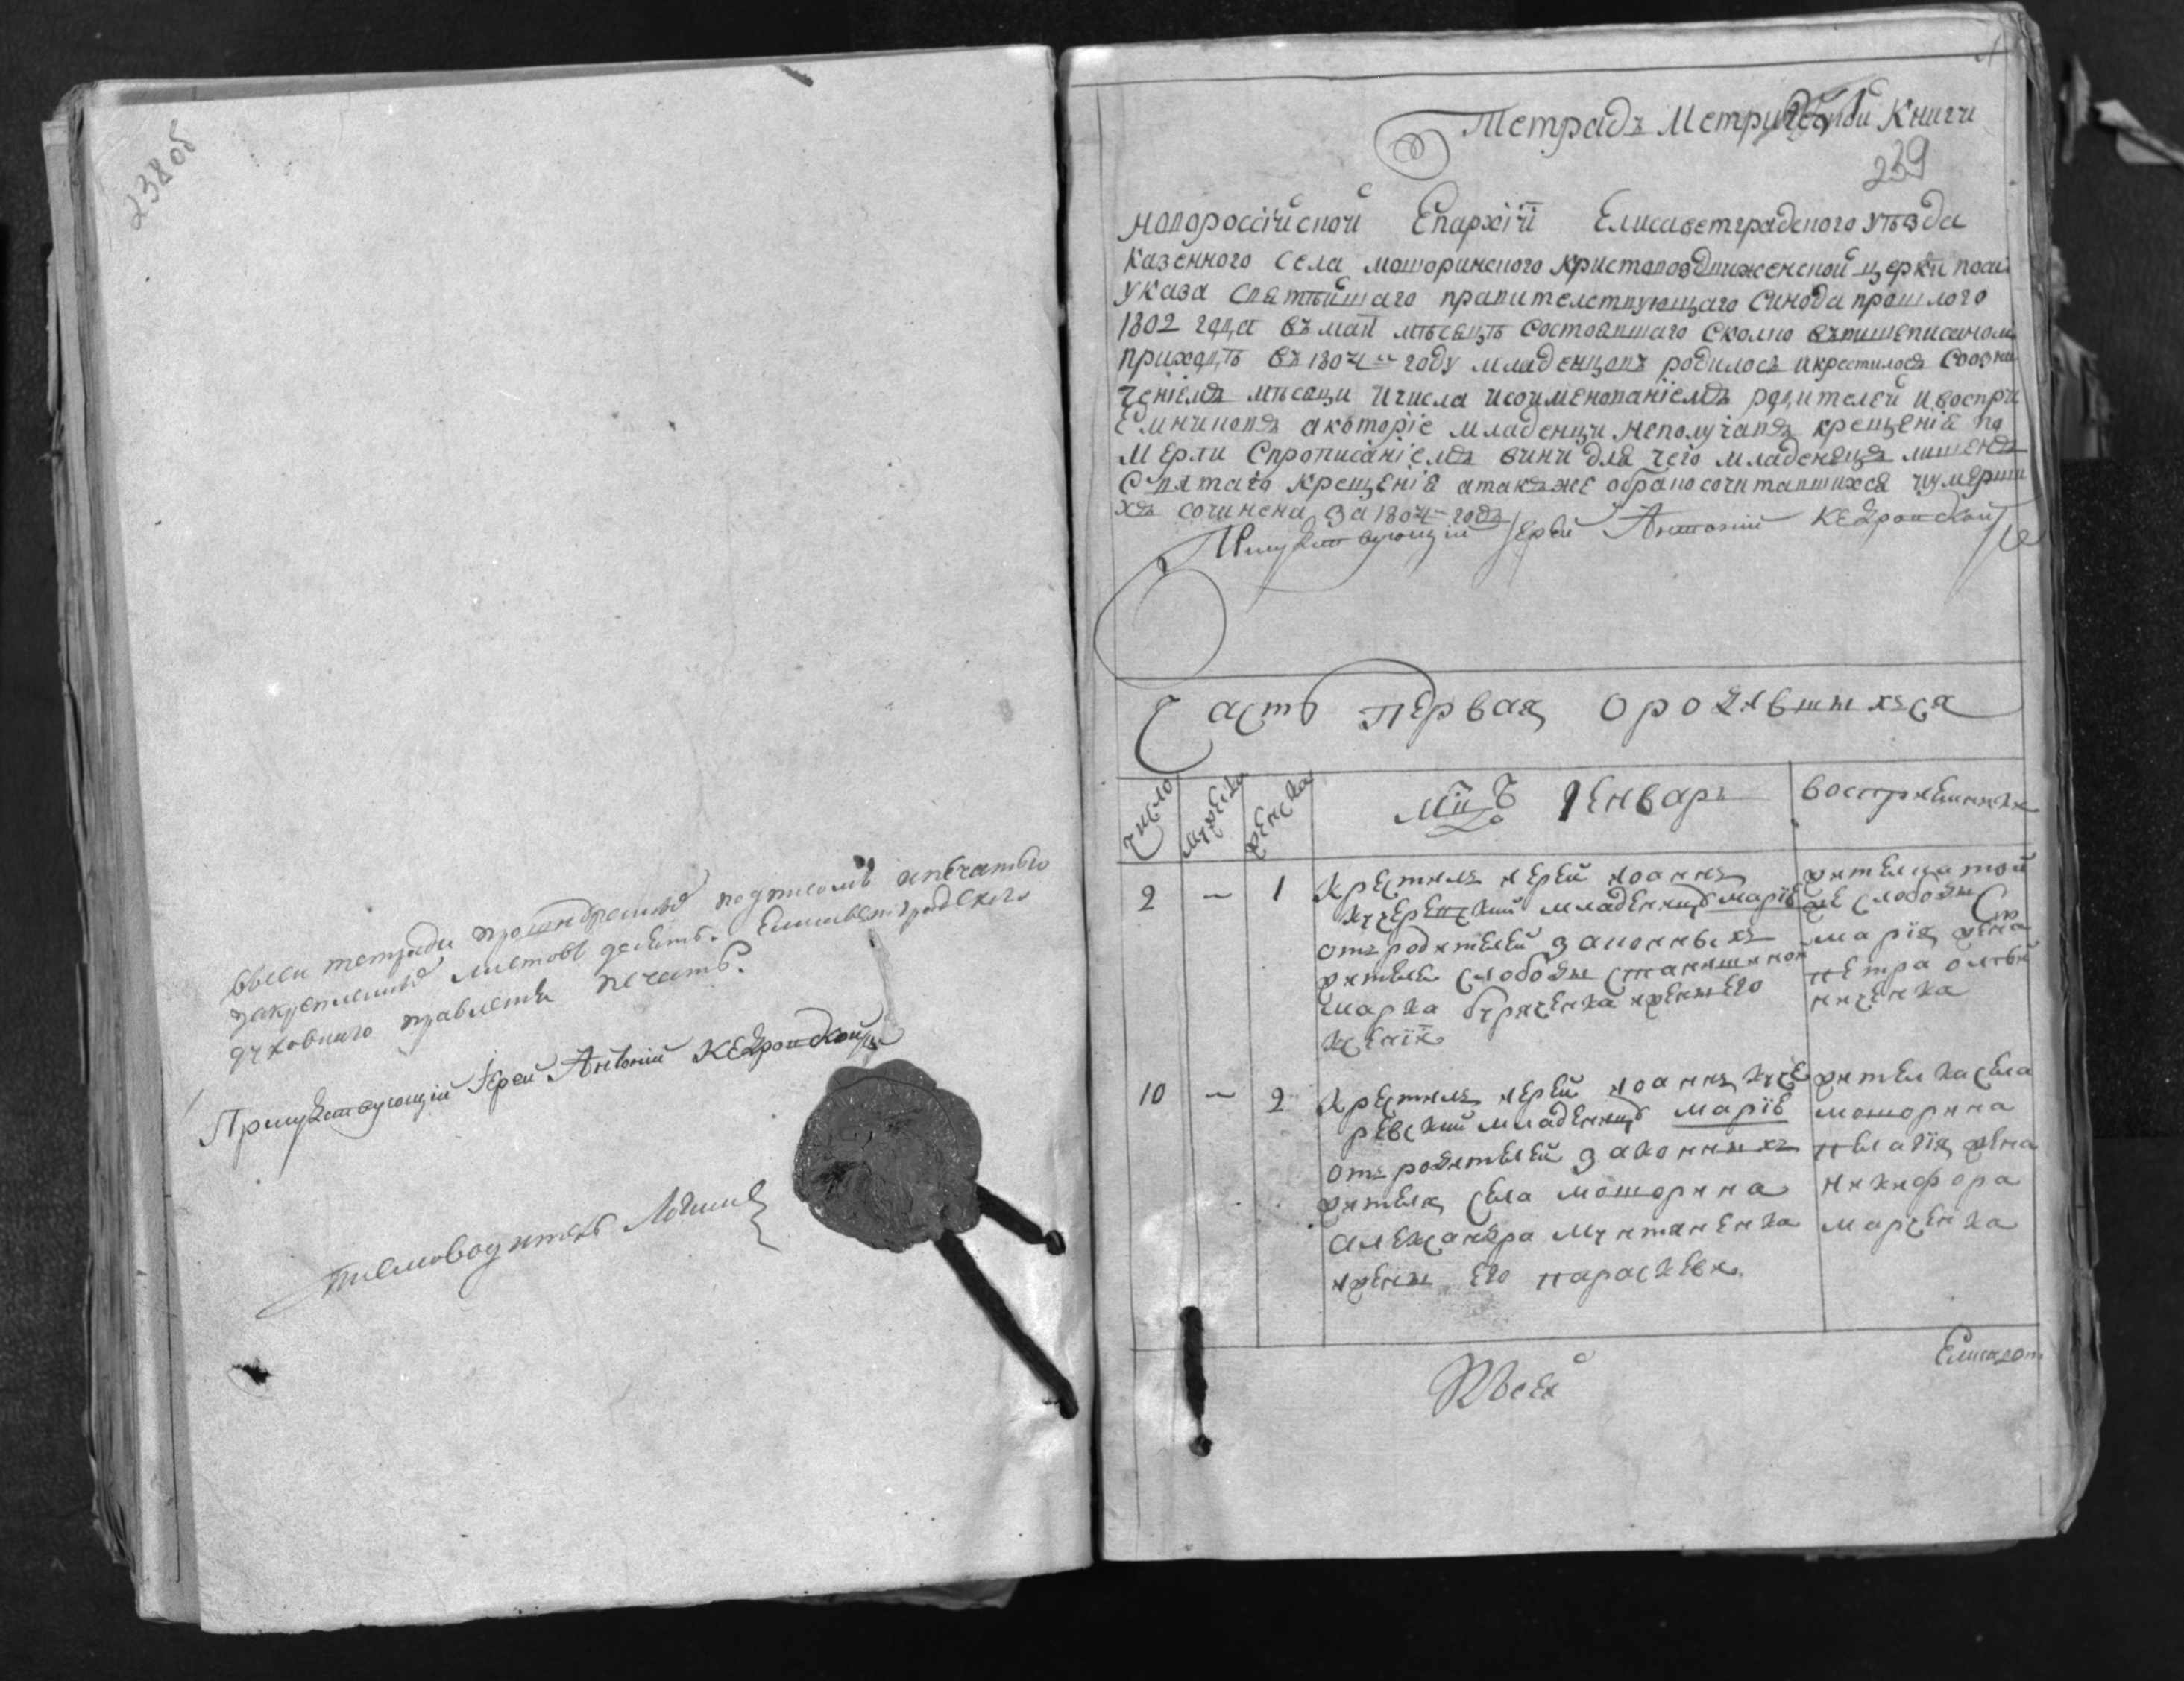 238об
Ввсеи тетради прошнурованой подписомъ ипечатью
закрепленной листовъ десеть. Елисаветградского
духовного правлениа печать.
Присудствующій Іерей Антоній Кедровской
писмоводитель
Тетрадъ Метрической Книги
239
новороссійской Епархіи Елисаветградского уѣзда
Казенного села мошоринского кристовоздвиженской церкви посил
указа святѣйшаго правителствующаго Синода прошлого
1802 года въ маи мѣсяцѣ состоявшаго сколко въвишеписаном
приходѣ въ 1804м году младенцовъ родилось икрестилось сообзна
ченіемъ мѣсеци ичисла исоименованіемъ родителей ивоспри
емниковъ акоторіе младенци неполучавъ крещеніе по
мерли спрописаніемъ вини для чего младенецъ лишенъ
святаго крещеніе атакъже обраносочитавшихся иумерши
хъ сочинена за 1804й годъ
Присудствующій Іерей Антоній Кедровской
Часть Первая ороди́вшихъся
число мужеска женска мцъ Генварь восприемники
2 — 1 Крестилъ иерей иоаннъ
кучеревский младеницу марію
отъ родителей законныхъ
жителе слободы
марка буряченка ижены его
ксеніи
жителца той
же слободы
марія жена
петра олѣй
ниченка
10 — 2 Крестилъ иерей иоаннъ куче
ревский младеницу марію
отъ родителей законныхъ
жителя села мошорина
александра мунтяненка
ижены его параскеви
жителка села
мошорина
пелагія жена
никифора
марченка
Всей
Елисавет